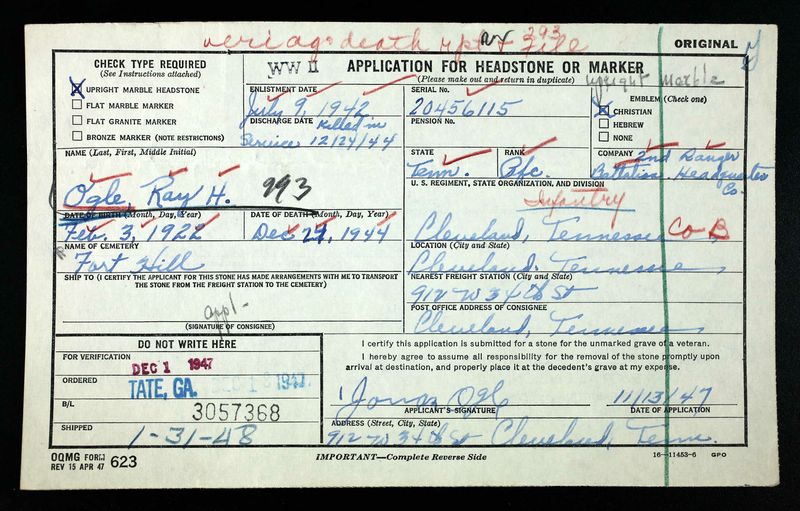 veri age death rpt & File
293
ORIGINAL
CHECK TYPE REQUIRED
(See Instructions attached)
X UPRIGHT MARBLE HEADSTONE
FLAT MARBLE MARKER
FLAT GRANITE MARKER
BRONZE MARKER (NOTE RESTRICTIONS)
WW II
APPLICATION FOR HEADSTONE OR MARKER
(Please make out and return in duplicate)
upright marble
ENLISTMENT DATE
July 9, 1942
DISCHARGE DATE
Killed in
Service 12/24/44
SERIAL No.
20456115
PENSION No.
EMBLEM (Check one)
X CHRISTIAN
HEBREW
NONE
NAME (Last, First, Middle Initial)
Ogle, Ray H. 993
STATE
Tenn.
RANK
Pfc.
COMPANY
2nd Ranger
Battalion Headquarter
Co.
U. S. REGIMENT, STATE ORGANIZATION, AND DIVISION
Infantry
Co B
DATE OF BIRTH (Month, Day, Year)
Feb. 3, 1922
DATE OF DEATH (Month, Day, Year)
Dec 24, 1944
Cleveland, Tennessee
NAME OF CEMETERY
Fort Hill
LOCATION (City and State)
Cleveland, Tennessee
SHIP TO (I CERTIFY THE APPLICANT FOR THIS STONE HAS MADE ARRANGEMENTS WITH ME TO TRANSPORT
THE STONE FROM THE FREIGHT STATION TO THE CEMETERY)
NEAREST FREIGHT STATION (City and State)
912 W 3 4th St
POST OFFICE ADDRESS OF CONSIGNEE
Cleveland, Tennessee
appl-
(SIGNATURE OF CONSIGNEE)
DO NOT WRITE HERE
FOR VERIFICATION
DEC 1 1947
ORDERED
TATE, GA.
1947
B/L
3057368
SHIPPED
1-31-48
I certify this application is submitted for a stone for the unmarked grave of a veteran.
I hereby agree to assume all responsibility for the removal of the stone promptly upon
arrival at destination, and properly place it at the decedent's grave at my expense.
Jonas Ogle 11/13/47
APPLICANT'S SIGNATURE DATE OF APPLICATION
ADDRESS (Street, City, State)
912 W 3 4th St Cleveland, Tenn.
OQMG FORM
REV 15 APR 47 623
IMPORTANT—Complete Reverse Side
16—11453-6 GPO